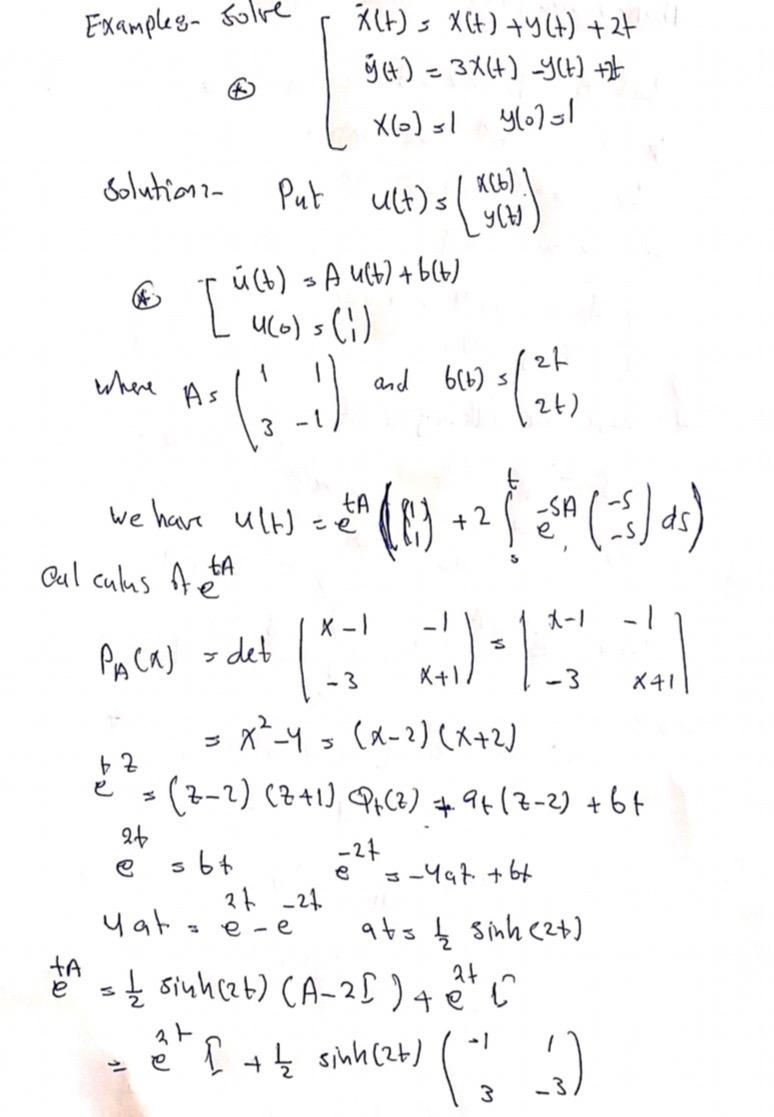 Examples- Solve [ ẋ(t) = x(t) + y(t) + 2t
ẏ(t) = 3x(t) - y(t) + 2t
(*)
x(0) = 1 y(0) = 1
Solution:- Put u(t) = (x(t) y(t))
(*) [ u̇(t) = A u(t) + b(t)
u(0) = (1 1)
where A = (1 1 3 -1) and b(t) = (2t 2t)
We have u(t) = e^{tA} ((1 1) + 2 ∫_0^t e^{-sA} (-s -s) ds)
Calculus of e^{tA}
P_A(x) = det (x-1 -1 -3 x+1) = |x-1 -1 -3 x+1|
= x² - 4 = (x-2)(x+2)
e^{tz} = (z-2)(z+1) Q_t(z) + a_t(z-2) + b_t
e^{2t} = b_t e^{-2t} = -4a_t + b_t
4a_t = e^{2t} - e^{-2t} a_t = 1/2 sinh(2t)
e^{tA} = 1/2 sinh(2t) (A-2I) + e^{2t} I
= e^{2t} I + 1/2 sinh(2t) (-1 1 3 -3)